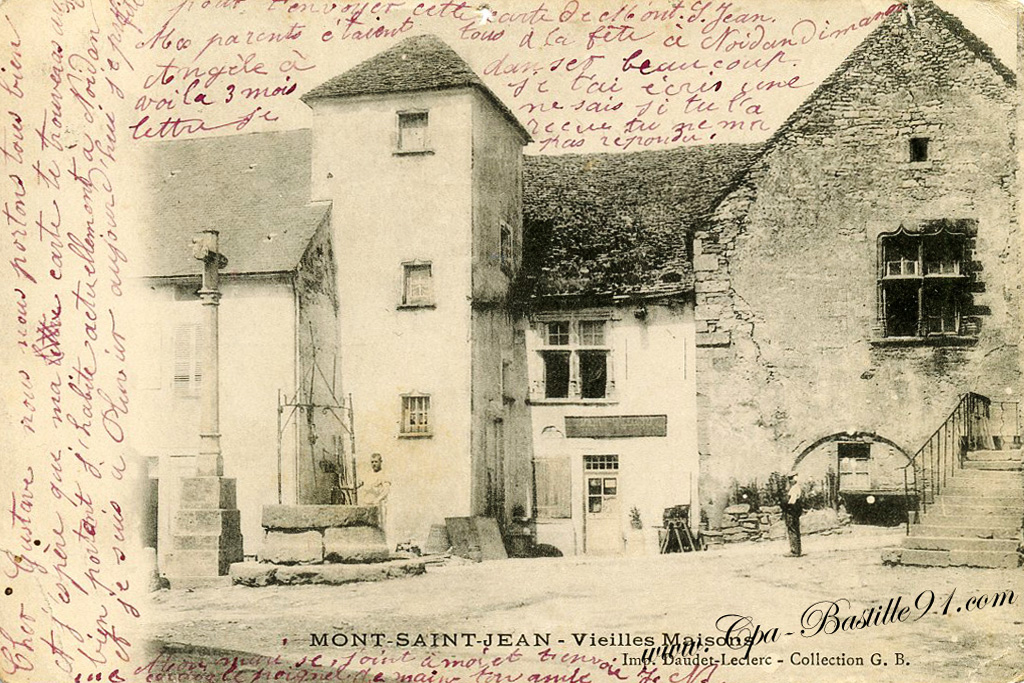 Cher Gustave nous nous portons tous bien
et j'espère que ma lettre carte te trouveras
bien portant j'habite actuellement à Noidan
et je suis à aujourd'hui je
pour t'envoyer cette carte de Mont. S. Jean.
Mes parents étaient tous à la fête à Noidan dimanche
Angèle à danser beaucoup.
voilà 3 mois je t'ai écris une
lettre je ne sais si tu l'a
reçue tu ne m'a
pas répondu.
MONT-SAINT-JEAN - Vieilles Maisons
Imp. Daudet-Leclerc - Collection G. B.
www.Cpa-Bastille91.com
Mon mari se joint à moi et t'envoie
une poignée de main ton amie